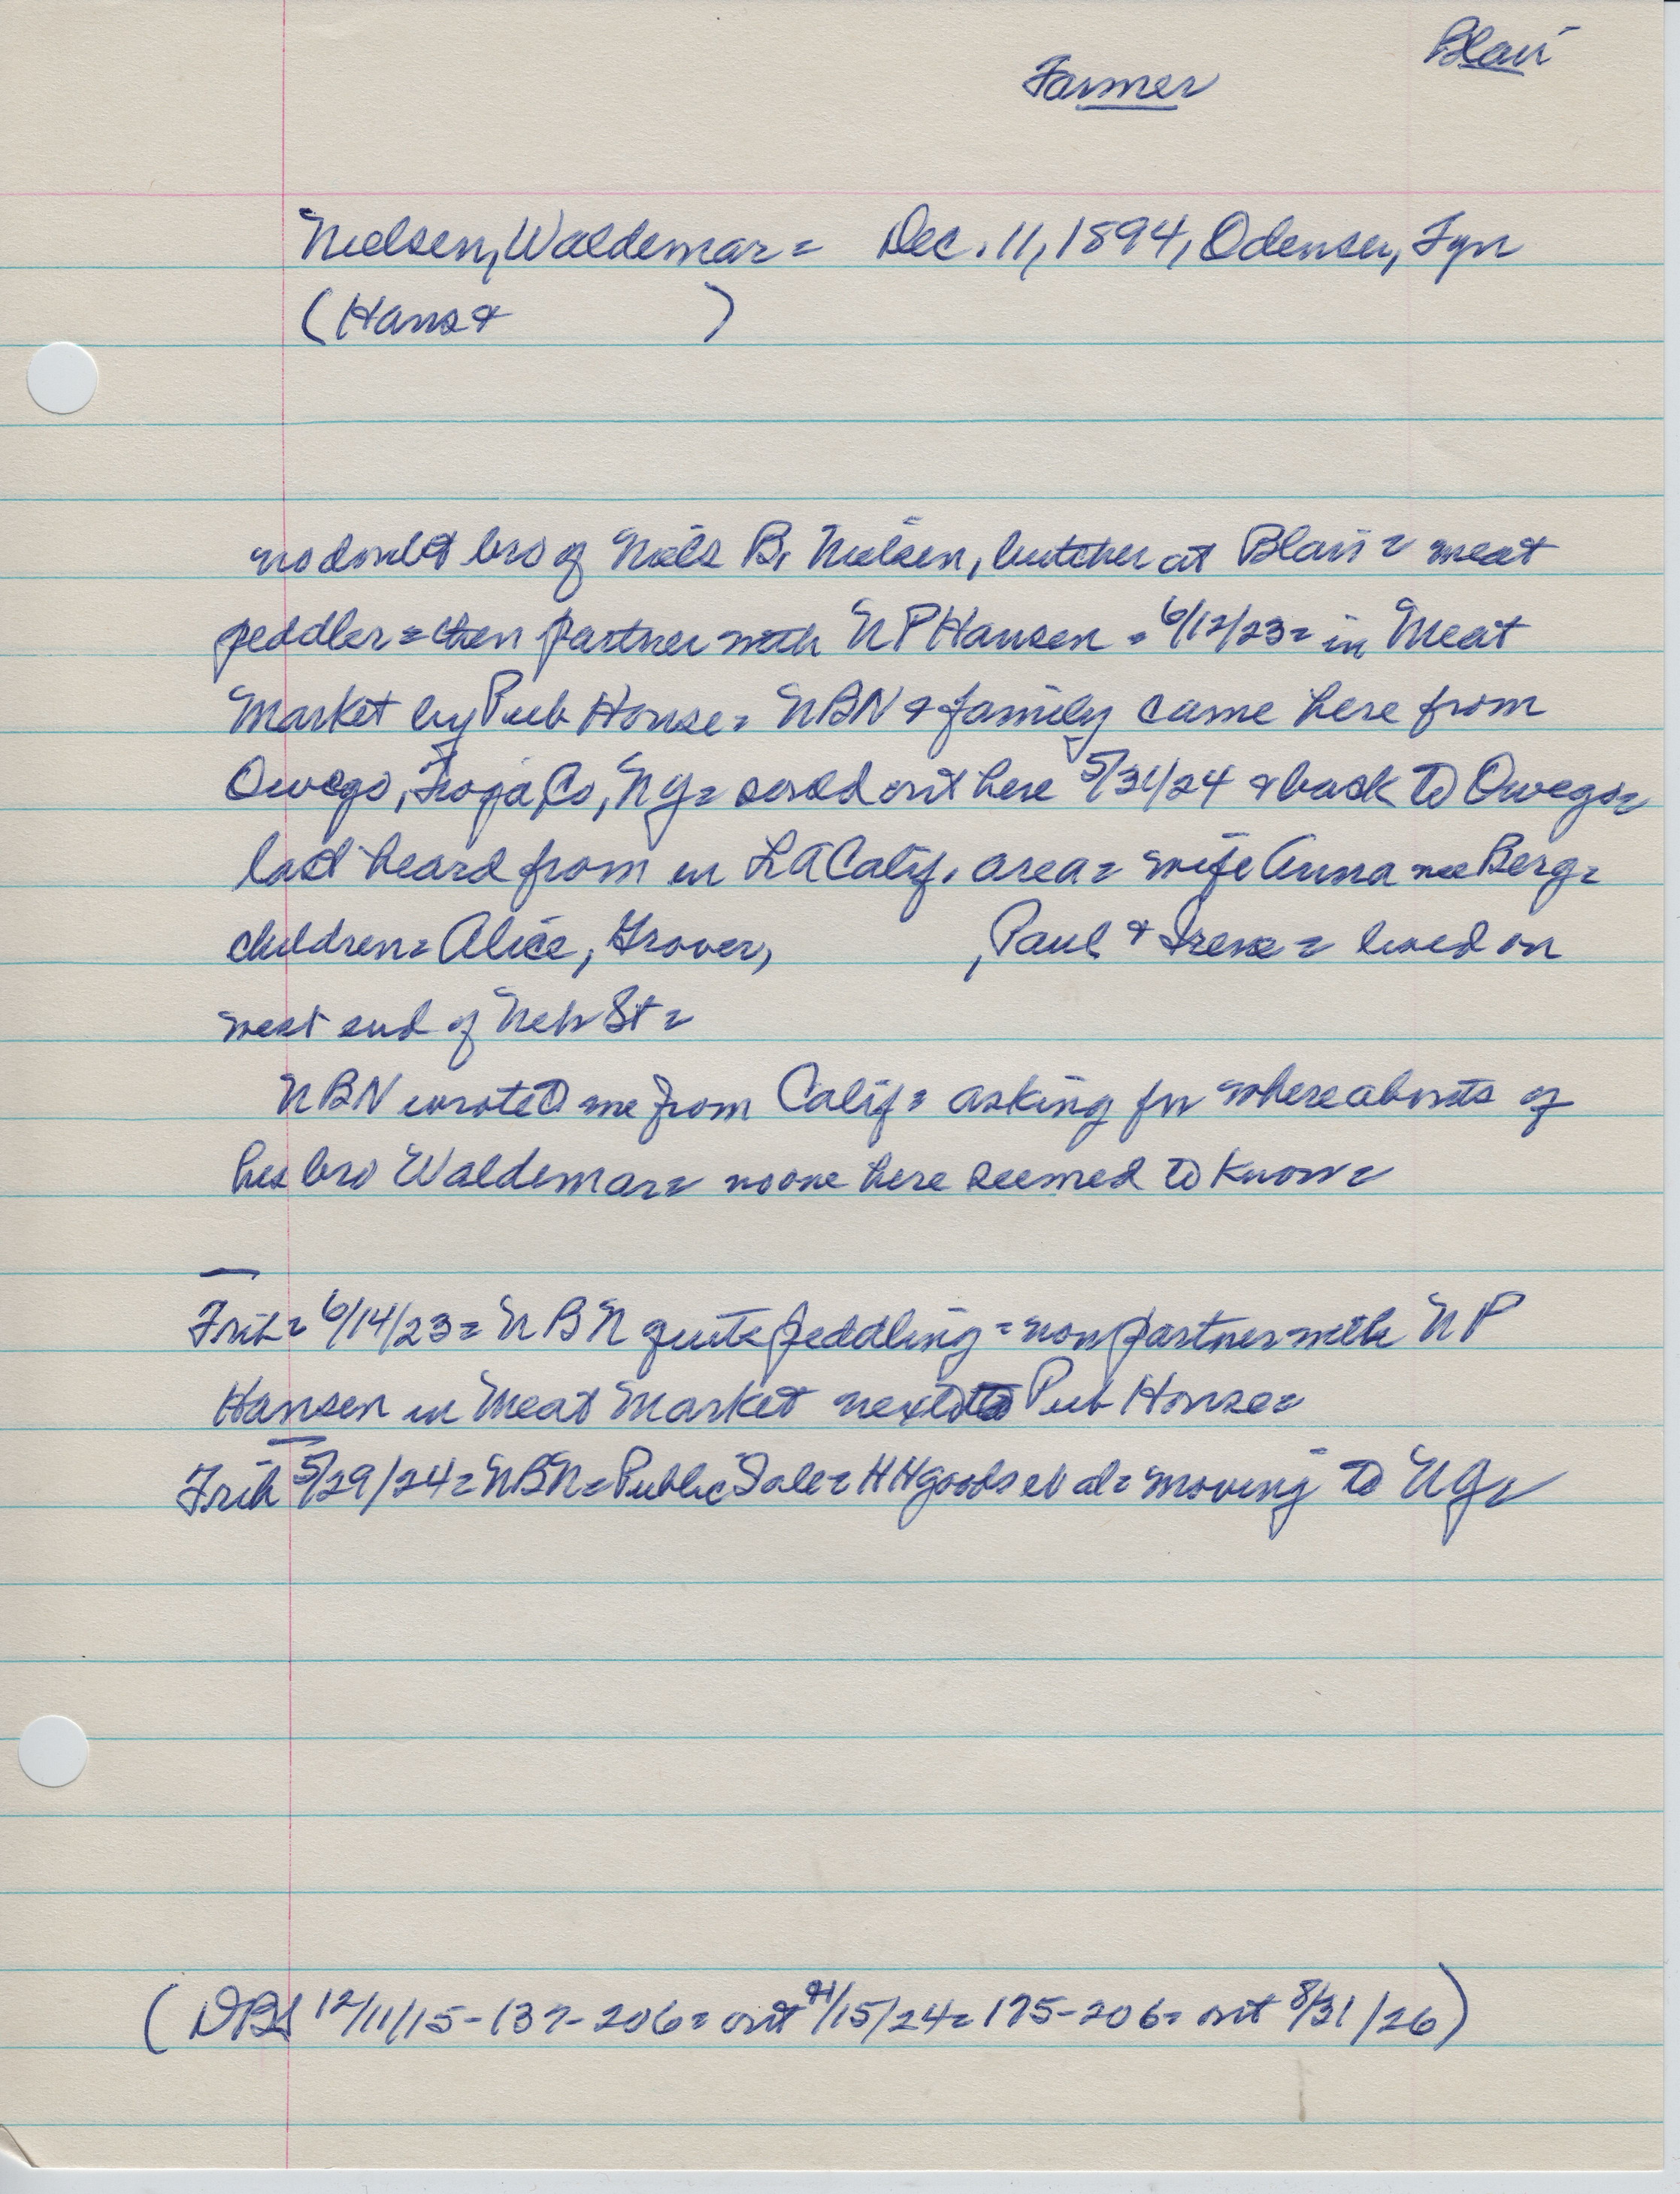 Blair
Farmer
Nielsen, Waldemar = Dec. 11, 1894, Odense, Fyn
(Hans & )
no doubt bro of Niels B. Nielsen, butcher at Blair = meat
peddler = then partner with NP Hansen = 6/12/23 = in Meat
Market by Pub House = NBN & family came here from
Owego, Tioga Co, NY = sold out here 5/31/24 & back to Owego =
last heard from in LA Calif. area = wife Anna nee Berg =
children = Alice, Grover, , Paul & Irene = lived on
west end of Neb St =
NBN wrote to me from Calif = asking for whereabouts of
his bro Waldemar = no one here seemed to know =
Trib = 6/14/23 = NBN quits peddling = now partner with NP
Hansen in Meat Market next to Pub House =
Trib 5/29/24 = NBN = Public Sale = HH goods et al = moving to NY =
(DBS 12/11/15 - 137 - 206 = out /15/24 = 175 - 206 = out 8/31/26)